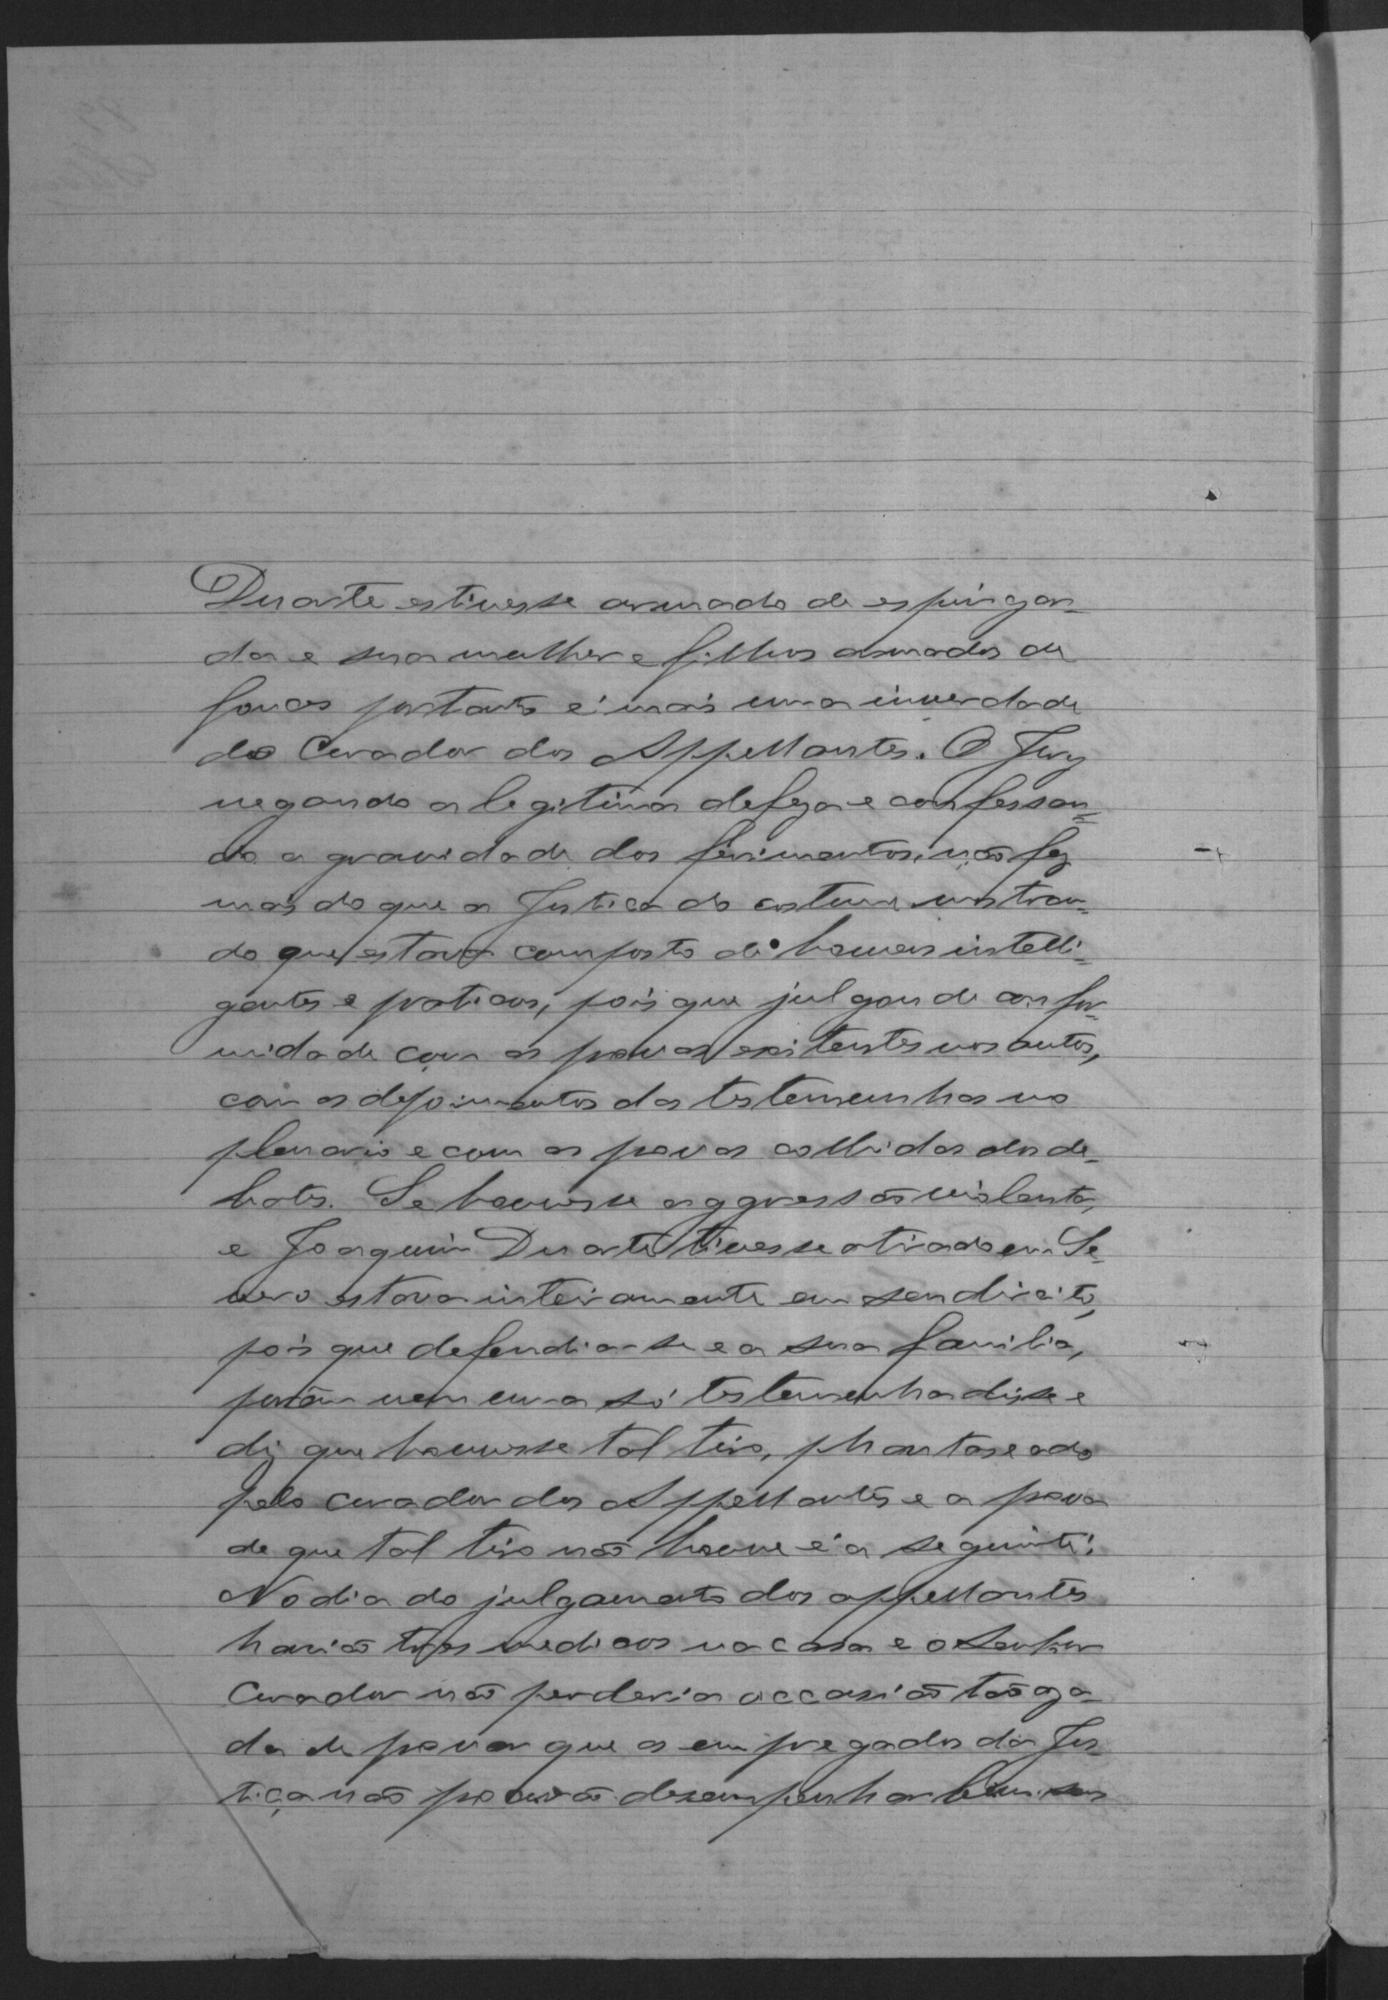 Duarte estivesse armado de espingar-
da e sua mulher e filhos armados de
fouces portanto é mais uma inverdade
do Curador dos Appellantes. O Jury
negando a legitima defeza e confessan-
do a gravidade dos ferimentos, não fez
mais do que a Justiça do costume mostran-
do que estava composto de homens intelli-
gentes e praticos, pois que julgou de confor-
midade com as provas existentes nos autos,
com os depoimentos das testemunhas no
plenario e com as provas colhidas dos de-
bates. Se houvesse aggressão violenta,
e Joaquim Duarte tivesse atirado em Se-
vero estava inteiramente em seu direito,
pois que defendia-se e a sua familia,
porém nem uma só testemunha disse e
diz que houvesse tal tiro, phantaseado
pelo curador dos Appellantes e a prova
de que tal tiro não houve é a seguinte:
No dia do julgamento dos appellantes
havião tres medicos na casa e o Senhor
Curador não perderia occasião tão aza-
da de provar que os empregados da Jus-
tiça não desempenhar bem seus